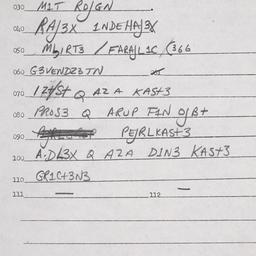 030 M1T RO/GN
040 RA/3X 1NDEHA/3X
050 ML/RT3 / FARA/L1C (366
060 G3VENDZ3TN
070 1Z/St Q AZA KASt3
080 PROS3 Q ARUP F1N O/B+
090 PE/RLKASt3
100 A.DL3X Q AZA D1N3 KASt3
110 GR1Ct3N3
111 — 112 —